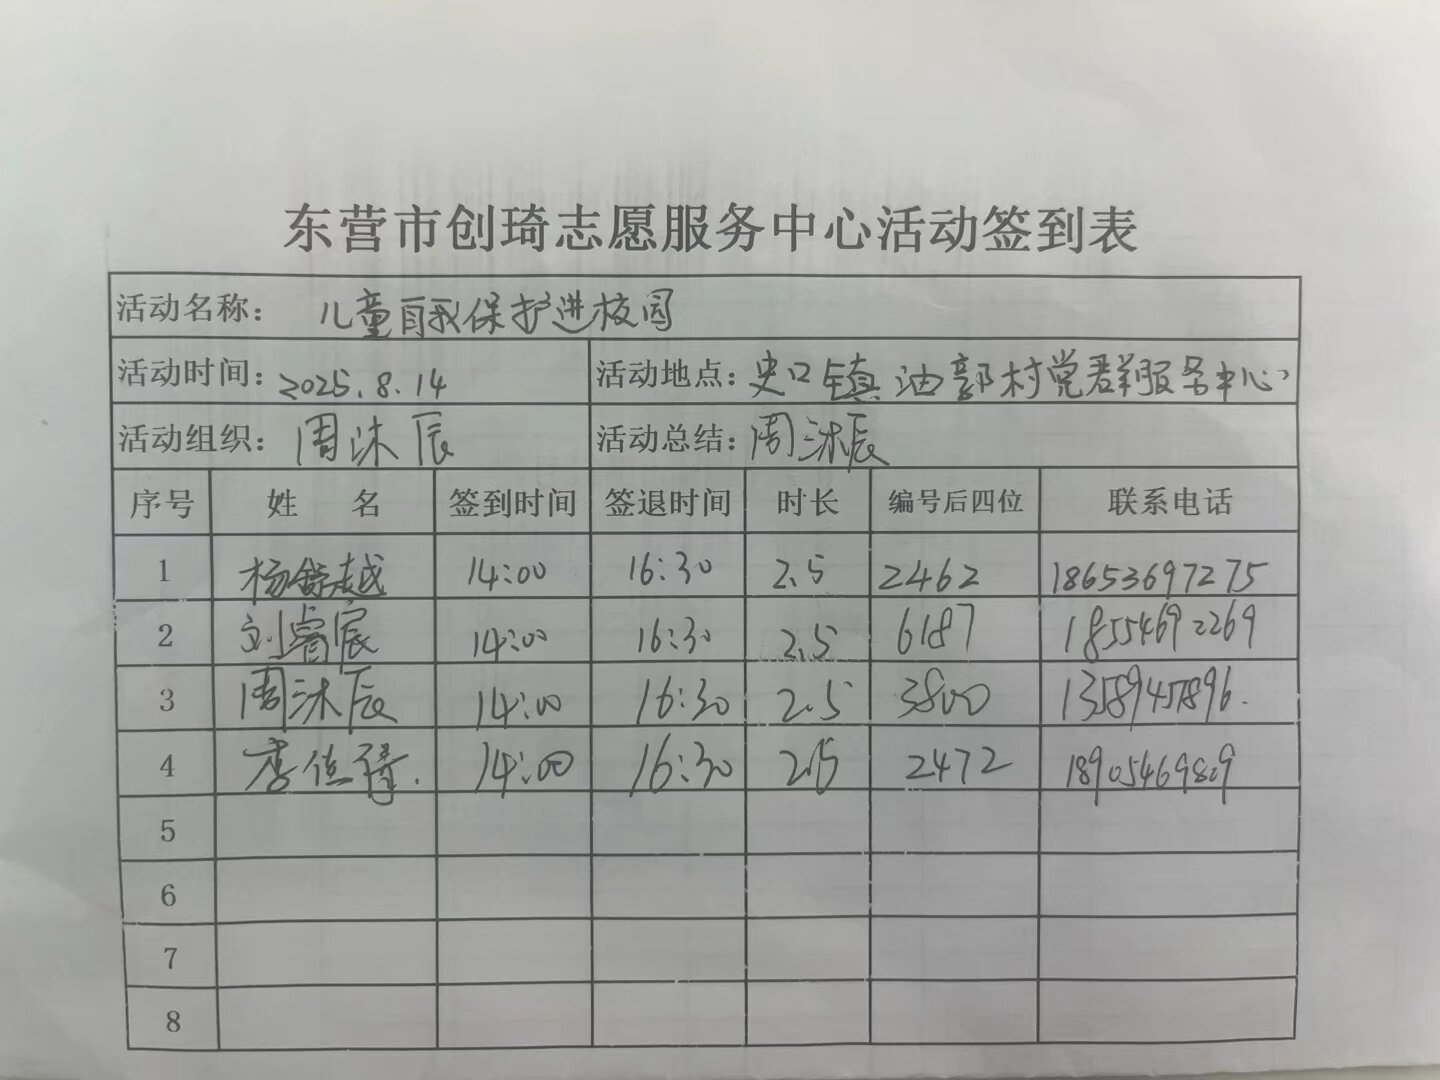 东营市创琦志愿服务中心活动签到表
活动名称： 儿童自我保护进校园
活动时间：2025.8.14 活动地点：史口镇油郭村党群服务中心
活动组织：周沐辰 活动总结：周沐辰
序号 姓 名 签到时间 签退时间 时长 编号后四位 联系电话
1 杨舒越 14:00 16:30 2.5 2462 18653697275
2 刘睿宸 14:00 16:30 2.5 6187 18554692269
3 周沐辰 14:00 16:30 2.5 3800 13589457896.
4 李佳 14:00 16:30 2.5 2472 18905469809
5
6
7
8